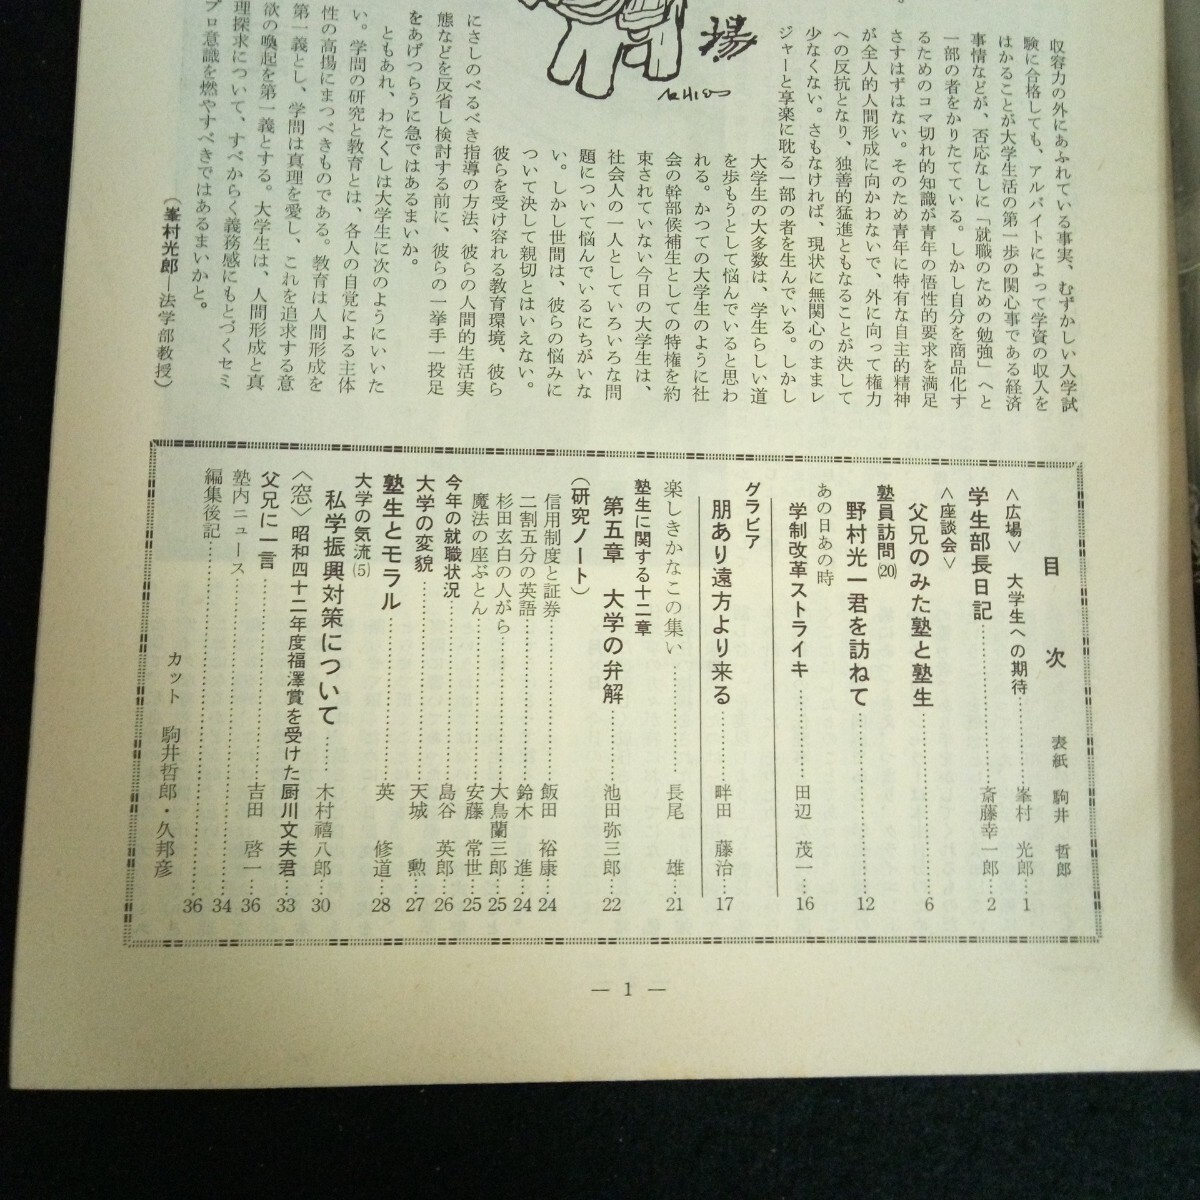 場
収容力の外にあふれている事実、むずかしい入学試
験に合格しても、アルバイトによって学資の収入を
はかることが大学生活の第一歩の関心事である経済
事情などが、否応なしに「就職のための勉強」へと
一部の者をかりたてている。しかし自分を商品化す
るためのコマ切れ的知識が青年の悟性的要求を満足
さすはずはない。そのため青年に特有な自主的精神
が全人的人間形成に向かわないで、外に向って権力
への反抗となり、独善的猛進ともなることが決して
少なくない。さもなければ、現状に無関心のままレ
ジャーと享楽に耽る一部の者を生んでいる。しかし
大学生の大多数は、学生らしい道
を歩もうとして悩んでいると思わ
れる。かつての大学生のように社
会の幹部候補生としての特権を約
束されていない今日の大学生は、
社会人の一人としていろいろな問
題について悩んでいるにちがいな
い。しかし世間は、彼らの悩みに
ついて決して親切とはいえない。
彼らを受け容れる教育環境、彼ら
にさしのべるべき指導の方法、彼らの人間的生活実
態などを反省し検討する前に、彼らの一挙手一投足
をあげつらうに急ではあるまいか。
ともあれ、わたくしは大学生に次のようにいいた
い。学問の研究と教育とは、各人の自覚による主体
性の高揚にまつべきものである。教育は人間形成を
第一義とし、学問は真理を愛し、これを追求する意
欲の喚起を第一義とする。大学生は、人間形成と真
理探求について、すべからく義務感にもとづくセミ
プロ意識を燃やすべきではあるまいかと。
（峯村光郎―法学部教授）
目次
表紙 駒井 哲郎
＜広場＞ 大学生への期待……峯村 光郎…1
学生部長日記……斎藤幸一郎…2
＜座談会＞
父兄のみた塾と塾生……6
塾員訪問(20)
野村光一君を訪ねて……12
あの日あの時
学制改革ストライキ……田辺 茂一…16
グラビア
朋あり遠方より来る……畔田 藤治…17
楽しきかなこの集い……長尾 雄…21
塾生に関する十二章
第五章 大学の弁解……池田弥三郎…22
（研究ノート）
信用制度と証券……飯田 裕康…24
二割五分の英語……鈴木 進…24
杉田玄白の人がら……大鳥蘭三郎…25
魔法の座ぶとん……安藤 常世…25
今年の就職状況……島谷 英郎…26
大学の変貌……天城 勲…27
塾生とモラル……英 修道…28
大学の気流(5)
私学振興対策について……木村禧八郎…30
〈窓〉昭和四十二年度福澤賞を受けた厨川文夫君…33
父兄に一言……吉田 啓一…36
塾内ニュース……34
編集後記……36
カット 駒井哲郎・久邦彦
― 1 ―